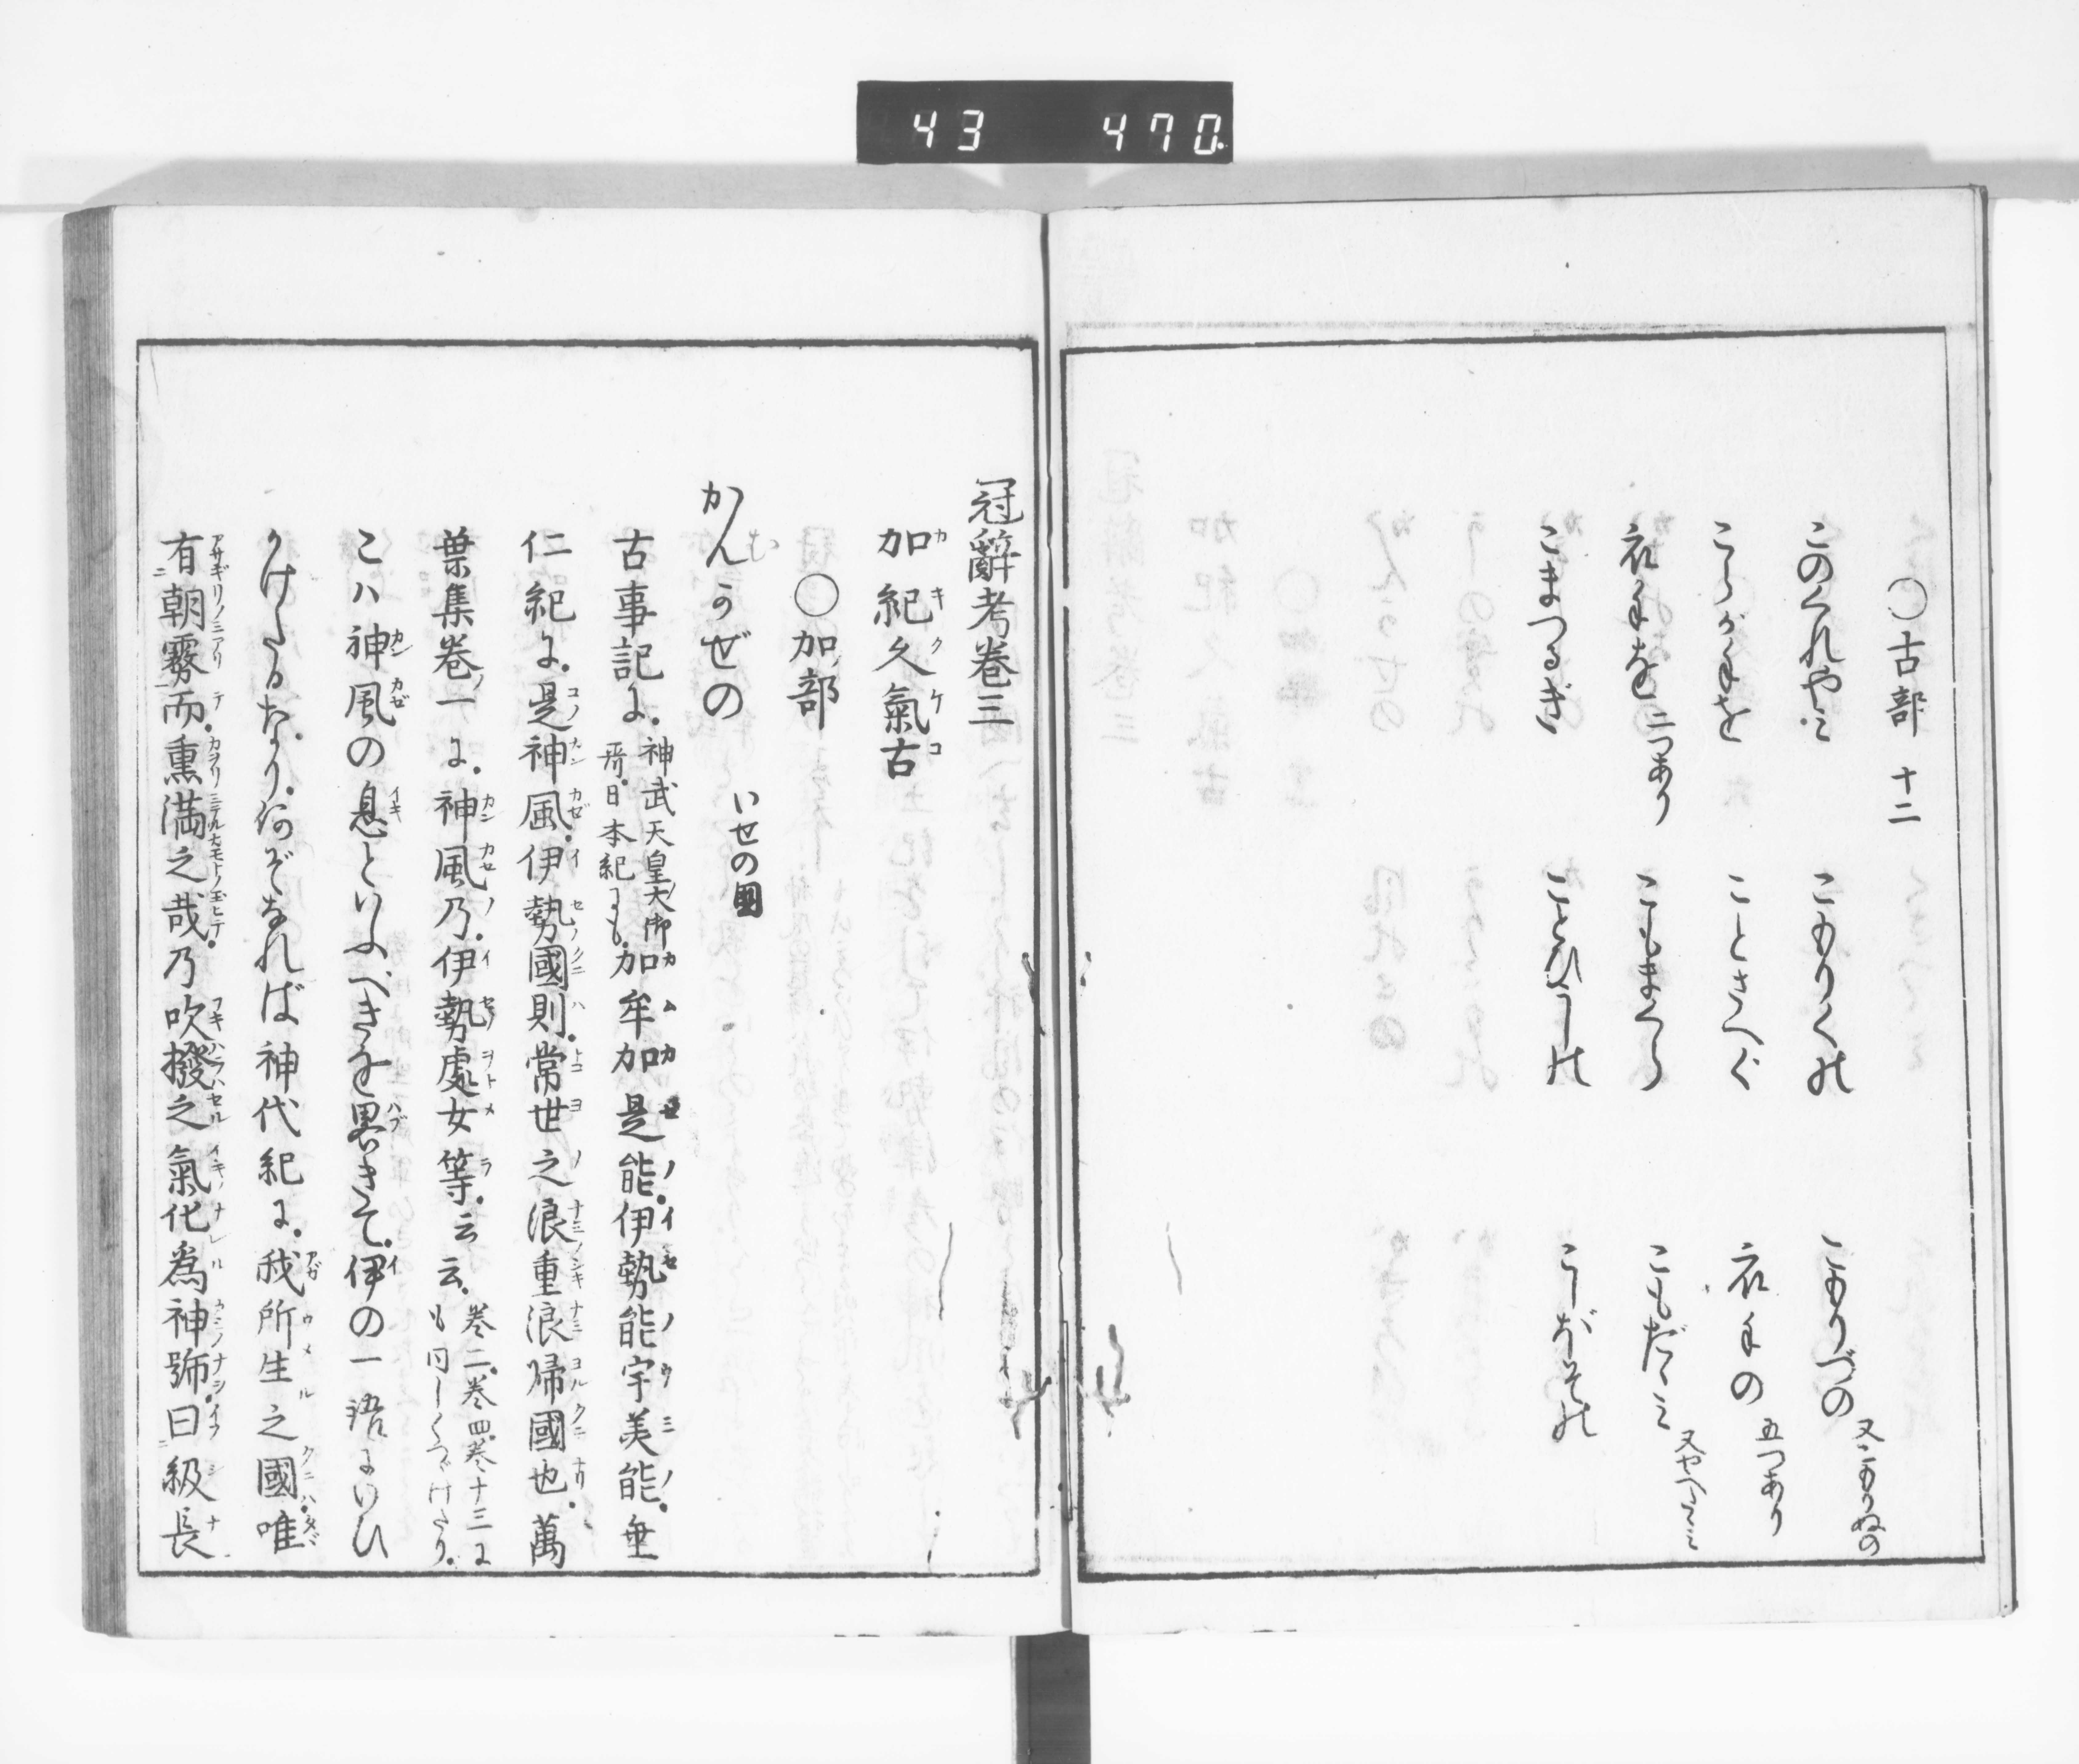 43 470.
○古部 十二
このくれやミ こもりくの こもりづの 又こもりぬの
ころがてを ことさへぐ 衣手の 五つあり
衣手を 二つあり こもまくら こもだゝミ 又やへだゝミ
こまつるぎ ことひうしの こしぼその
冠辭考卷三
加紀久氣古
○加部
かんかぜの いせの國
古事記に。神武天皇大御哥。日本紀にも。加牟加是能。伊勢能宇美能。垂
仁紀に。是神風。伊勢國則。常世之浪重浪歸國也。萬
葉集卷一に。神風乃。伊勢處女等。云云。卷二。卷四。卷十三にも同しくつゞけたり。
こハ神風の息といふべきを畧きて。伊の一語にいひ
かけたるなり。何ぞなれば神代紀に。我所生之國。唯
有朝霧而。熏満之哉。乃吹撥之氣化爲神號。曰級長